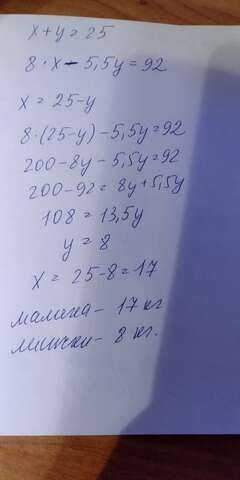 x + y = 25
8 · x - 5,5y = 92
x = 25 - y
8 · (25 - y) - 5,5y = 92
200 - 8y - 5,5y = 92
200 - 92 = 8y + 5,5y
108 = 13,5y
y = 8
x = 25 - 8 = 17
малина - 17 кг
- 8 кг.